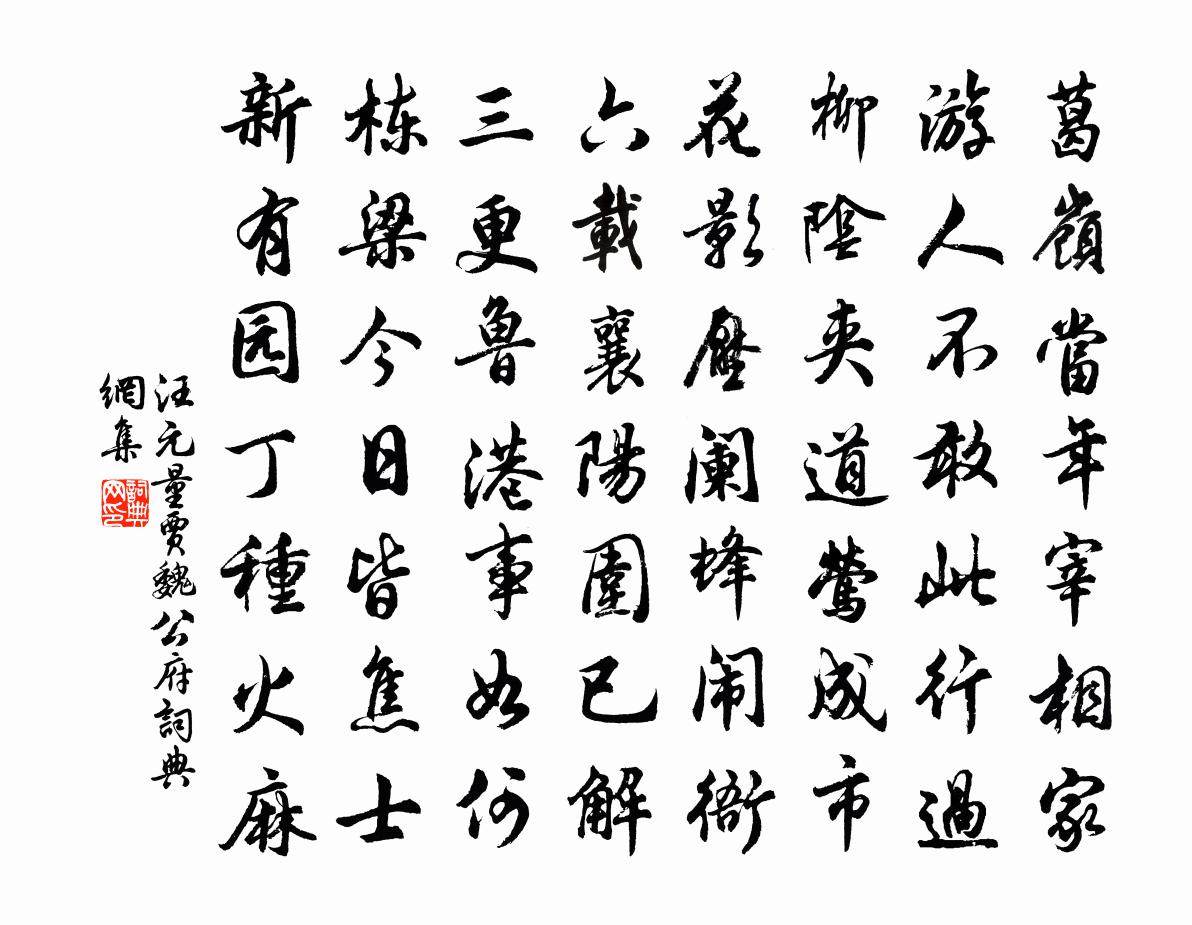 葛嶺當年宰相家
游人不敢此行過
柳陰夾道鶯成市
花影壓阑蜂闹衙
六載襄陽圍已解
三更魯港事如何
栋梁今日皆焦土
新有园丁種火麻
汪元量賈魏公府詞典
網集
詞典
网印